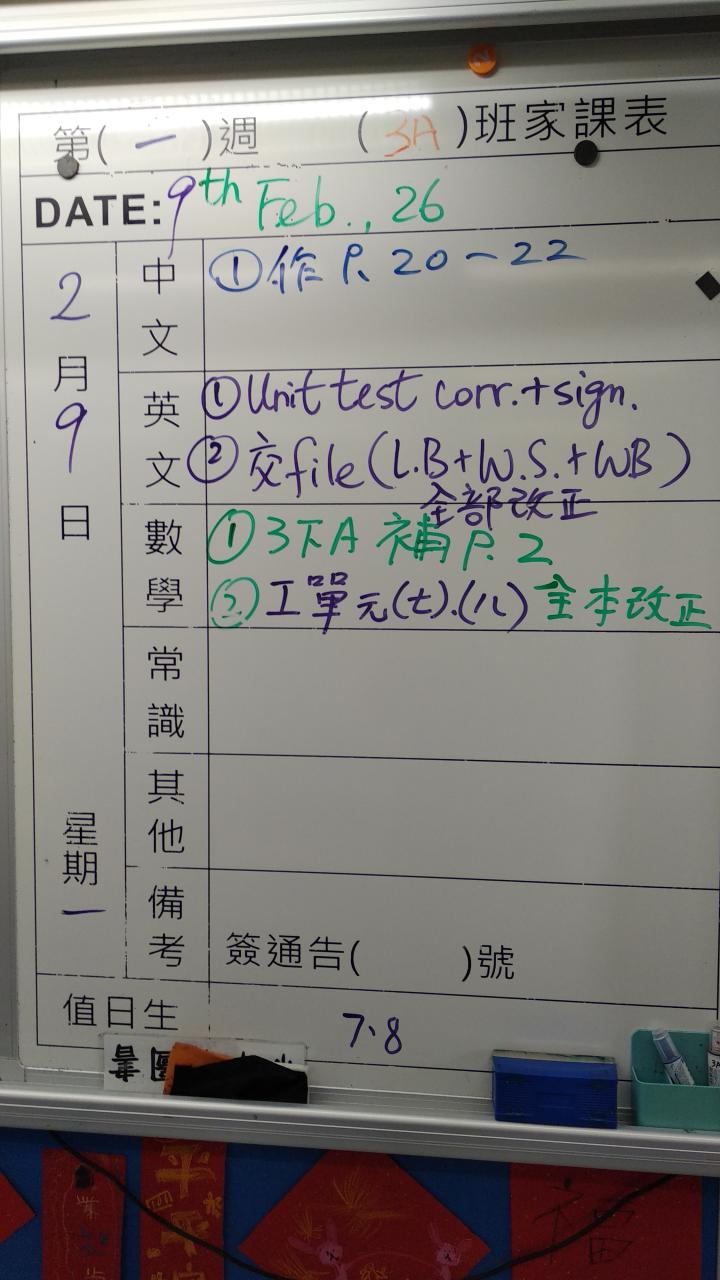 第(一)週 (3A)班家課表
DATE: 9th Feb., 26
2月9日 星期一
中文
①作 P. 20－22
英文
①Unit test corr.+sign.
②交file(L.B+W.S.+WB)
全部改正
數學
①3下A 補 P. 2
②工單元(七).(八)全本改正
常識
其他
備考
簽通告( )號
值日生
7、8
福